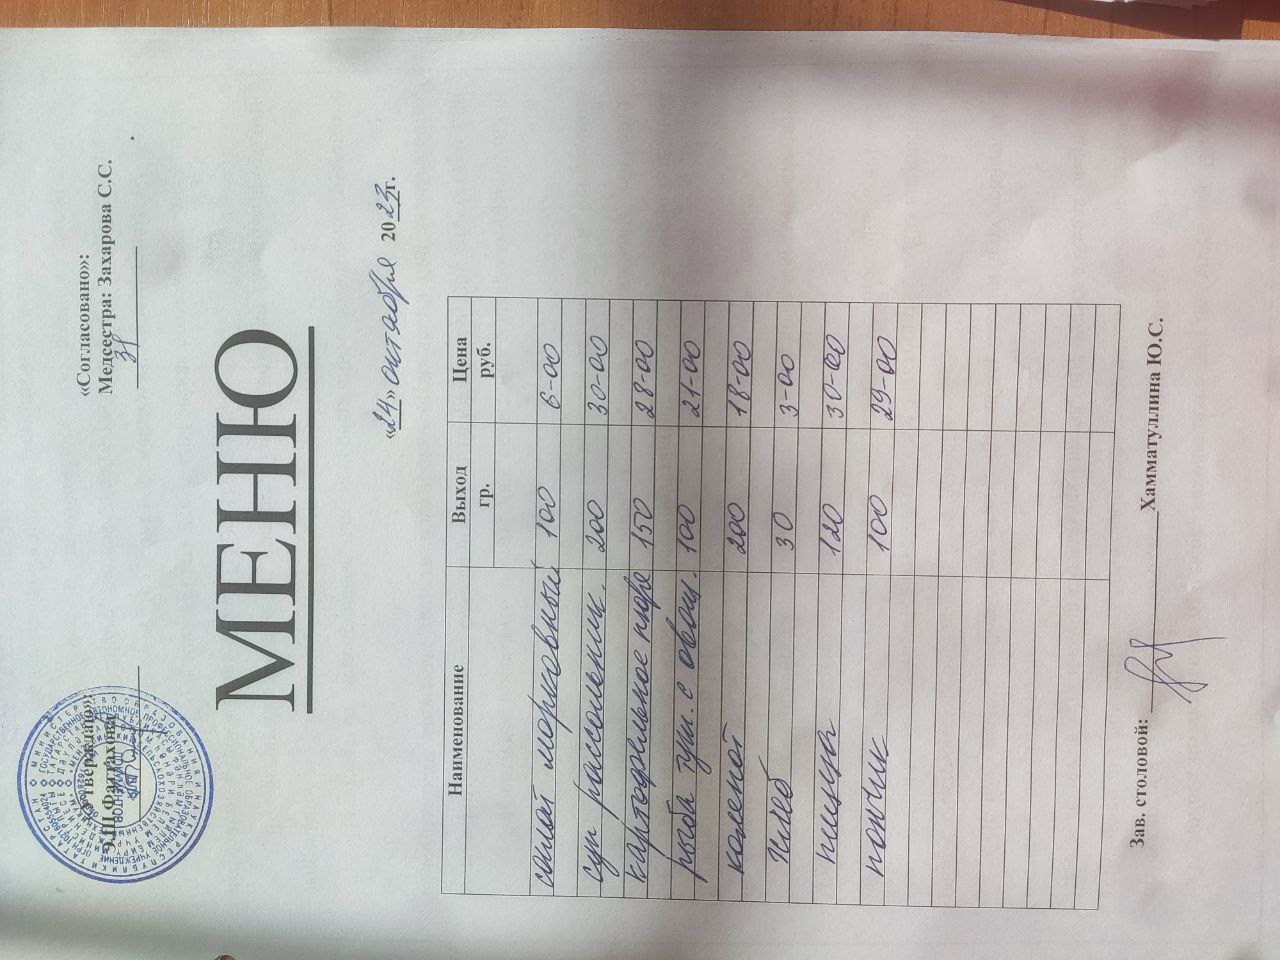 «Утверждаю»:
Э.Ш.Фаттахова
«Согласовано»:
Медсестра: Захарова С.С.
МЕНЮ
«24» октября 2023г.
Наименование Выход гр. Цена руб.
салат морковный 100 6-00
суп рассольник. 200 30-00
картофельное пюре 150 28-00
рыба туш. с овощ. 100 21-00
компот 200 18-00
хлеб 30 3-00
пицца 120 30-00
пончик 100 29-00
Зав. столовой: Хамматуллина Ю.С.